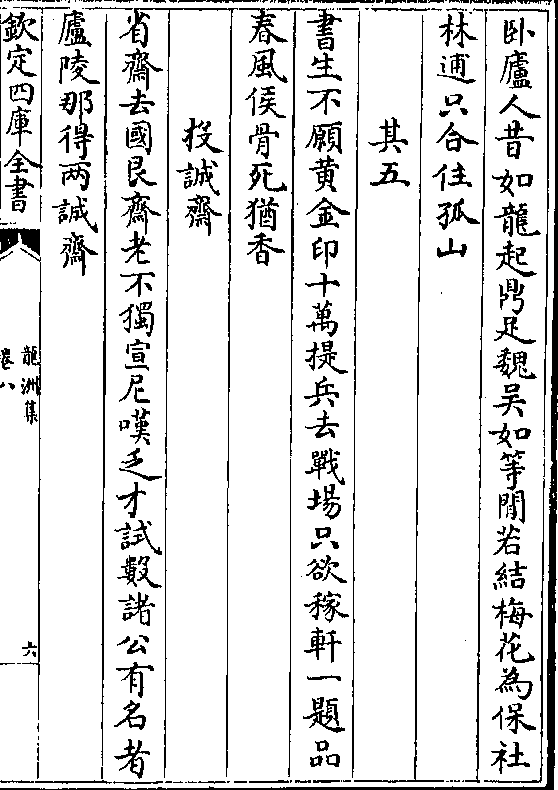 卧廬人昔如龍起鼎足魏吳如等閒若結梅花為保社
林逋只合住孤山
其五
書生不願黄金印十萬提兵去戰場只欲稼軒一題品
春風侯骨死猶香
投誠齋
省齋去國艮齋老不獨宣尼嘆乏才試數諸公有名者
廬陵那得兩誠齋
欽定四庫全書
龍洲集
卷八
六